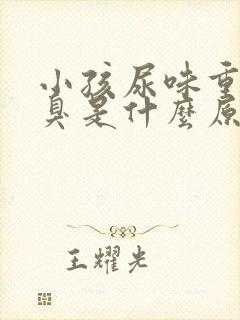 小孩尿味重
臭是什麼原
王耀光